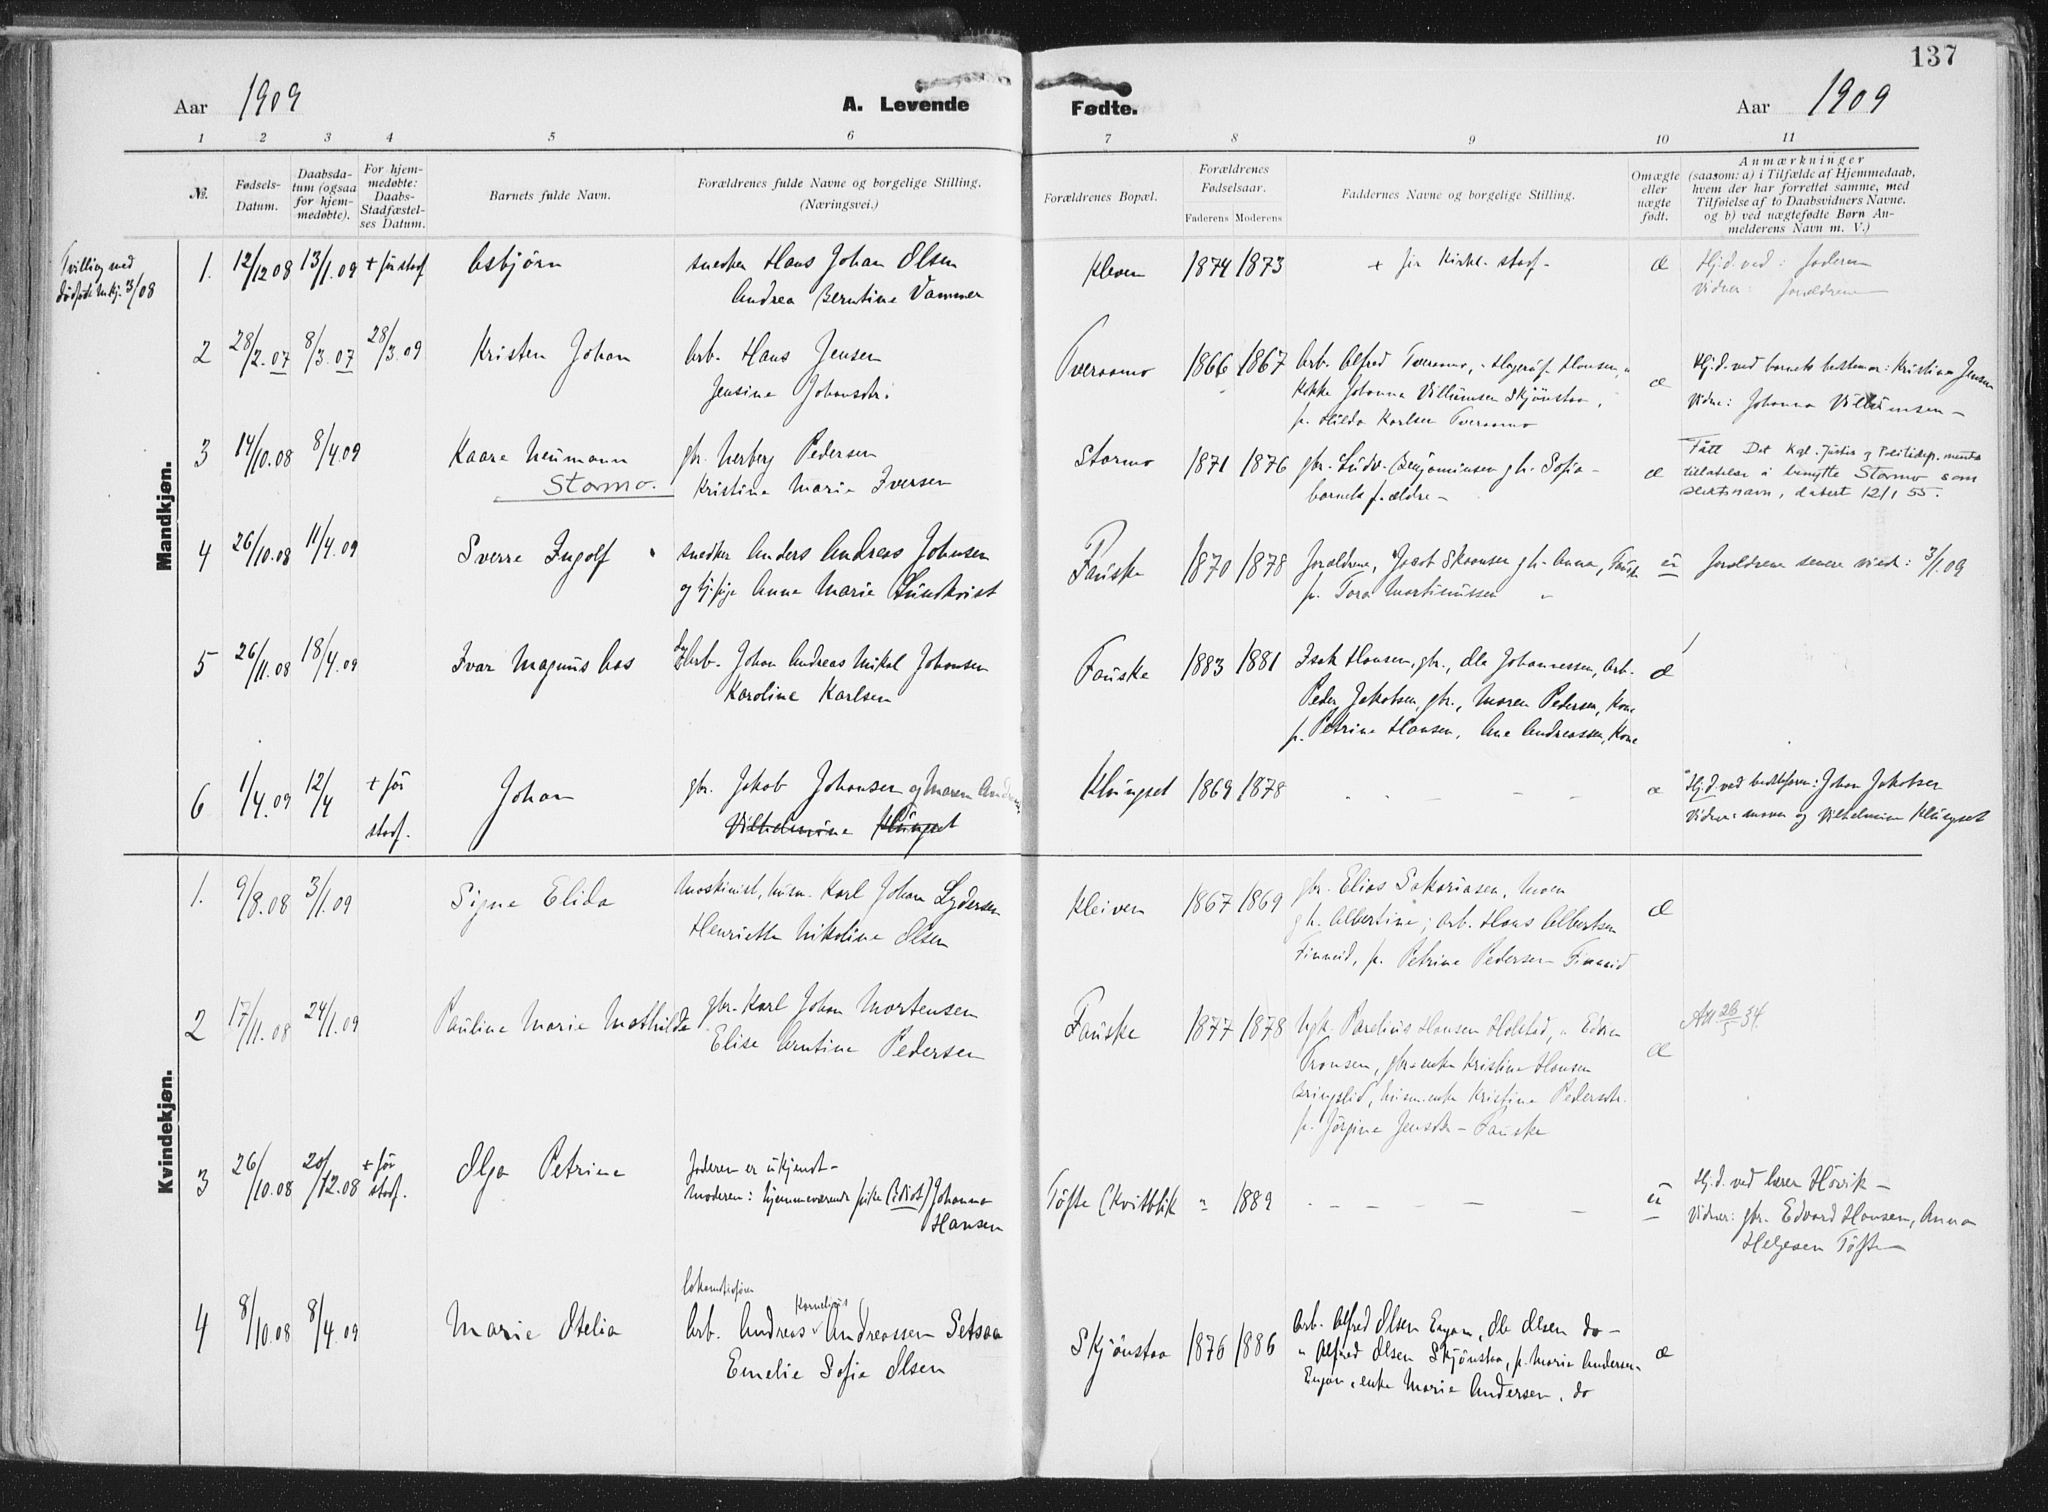 137
Aar 1909
A. Levende Fødte.
Aar 1909
1 2 3 4 5 6 7 8 9 10 11
№.
Fødsels-
Datum.
Daabsda-
tum (ogsaa
for hjem-
medøbte).
For hjem-
medøbte:
Daabs-
Stadfæstel-
ses Datum.
Barnets fulde Navn.
Forældrenes fulde Navne og borgelige Stilling.
(Næringsvei.)
Forældrenes Bopæl.
Forældrenes
Fødselsaar.
Faderens Moderens
Faddernes Navne og borgelige Stilling.
Omægte
eller
uægte
født.
Anmærkninger
(saasom: a) i Tilfælde af Hjemmedaab,
hvem der har forrettet samme, med
Tilføielse af to Daabsvidners Navne.
og b) ved uægtefødte Børn An-
melderens Navn m. V.)
Mandkjøn.
Tvilling med
dødfødt mkj. 3/08
1. 12/12 08 13/1.09 + før stadf. Asbjørn
snedker Hans Johan Olsen
Andrea Berntine Vammer
Kleven 1874 1873 + før Kirkl. stadf. æ
Hj.d. ved: faderen
Vidner: forældrene
2 28/2.07 8/3.07 28/3.09 Kristen Johan
Arb. Hans Jensen
Jensine Johansdtr.
Tveraamo 1866 1867
Arb. Alfred Tveraamo, Hansen,
Kokke Johanna Villumsen Skjönstaa,
p. Hilda Karlsen Tveraamo
æ
Hj.d. ved barnets bestemor: Kristina Jensen
Vidne: Johanna Villumsen
3 14/10.08 8/4.09 Kaare Neumann
Stormo.
gbr. Nerberg Pedersen
Kristine Marie Iversen
Stormo 1871 1876
gbr. Ludv. Benjaminsen gh. Sofie
barnets f.ældre
æ
Fått Det Kgl. Justis og Politidep. ments
tillatelse å benytte Stormo som
slektsnavn, datert 12/1 55.
4 26/10.08 11/4.09 Sverre Ingolf
snedker Anders Andreas Johnsen
og Anna Marie Lundkvist
Fauske 1870 1878
forældrene, Jacob Skaansen gh. Anna, Fauske
p. Tora Martinussen "
u
forældrene senere viede: 3/1.09
5 26/11.08 18/4.09 Ivar Magnus Aas
Arb. Johan Andreas Mikal Johansen
Karoline Karlsen
Fauske 1883 1881
Isak Hansen, gbr., Ole Johannessen, Arb.
Peder Jakobsen, gbr., Maren Pedersen, Kone
p. Petrine Hansen, Ane Andreassen, Kone
æ
6 1/4.09 12/4 + før
stadf.
Johan
gbr. Jakob Johansen og Maren
Vilhelmine Klungset
Klungset 1869 1878 æ
Hj.d. ved bestefaren: Johan Jakobsen
Vidner: moren og Vilhelmine Klungset
Kvindekjøn.
1. 9/8.08 3/1.09 Signe Elida
Maskinist, husm. Karl Johan Lydersen
Henriette Nikoline Olsen
Kleiven 1867 1869
gbr. Elias Sakariasen, Moen
gh. Albertine; Arb. Hans Albertsen
Finneid, p. Petrine Pedersen Finneid
æ
2 17/11.08 24/1.09 Pauline Marie Mathilde
gbr. Karl Johan Mortensen
Elise Arntine Pedersen
Fauske 1877 1878
Ugk. Parelius Hansen Holstad, " Edvin
Pronsen, gbr.enke Kristine Hansen
Bringslid, husm.enke Kristine Pedersdtr.
p. Jörgine Jensdtr. Fauske
æ
Att 26/5 34.
3 26/10.08 20/12.08 + før
stadf.
Olga Petrine
faderen er ukjendt
Moderen: hjemmeværende pike (Idiot) Johanna
Hansen
Töfte (Kvitblik " 1889 u
Hj.d. ved lærer Hövik
Vidner: gbr. Edvard Hansen, Anna
Helgesen Töfte
4 8/10.08 8/4.09 Marie Otelia
Lokomotivfører
Kornelius
Arb. Andreas Andreassen Setsaa
Emelie Sofie Olsen
Skjönstaa 1876 1886
Arb. Alfred Olsen Engan, Ole Olsen do
" Alfred Olsen Skjönstaa, p. Marie Andersen
Engan, enke Marie Andersen, do
æ